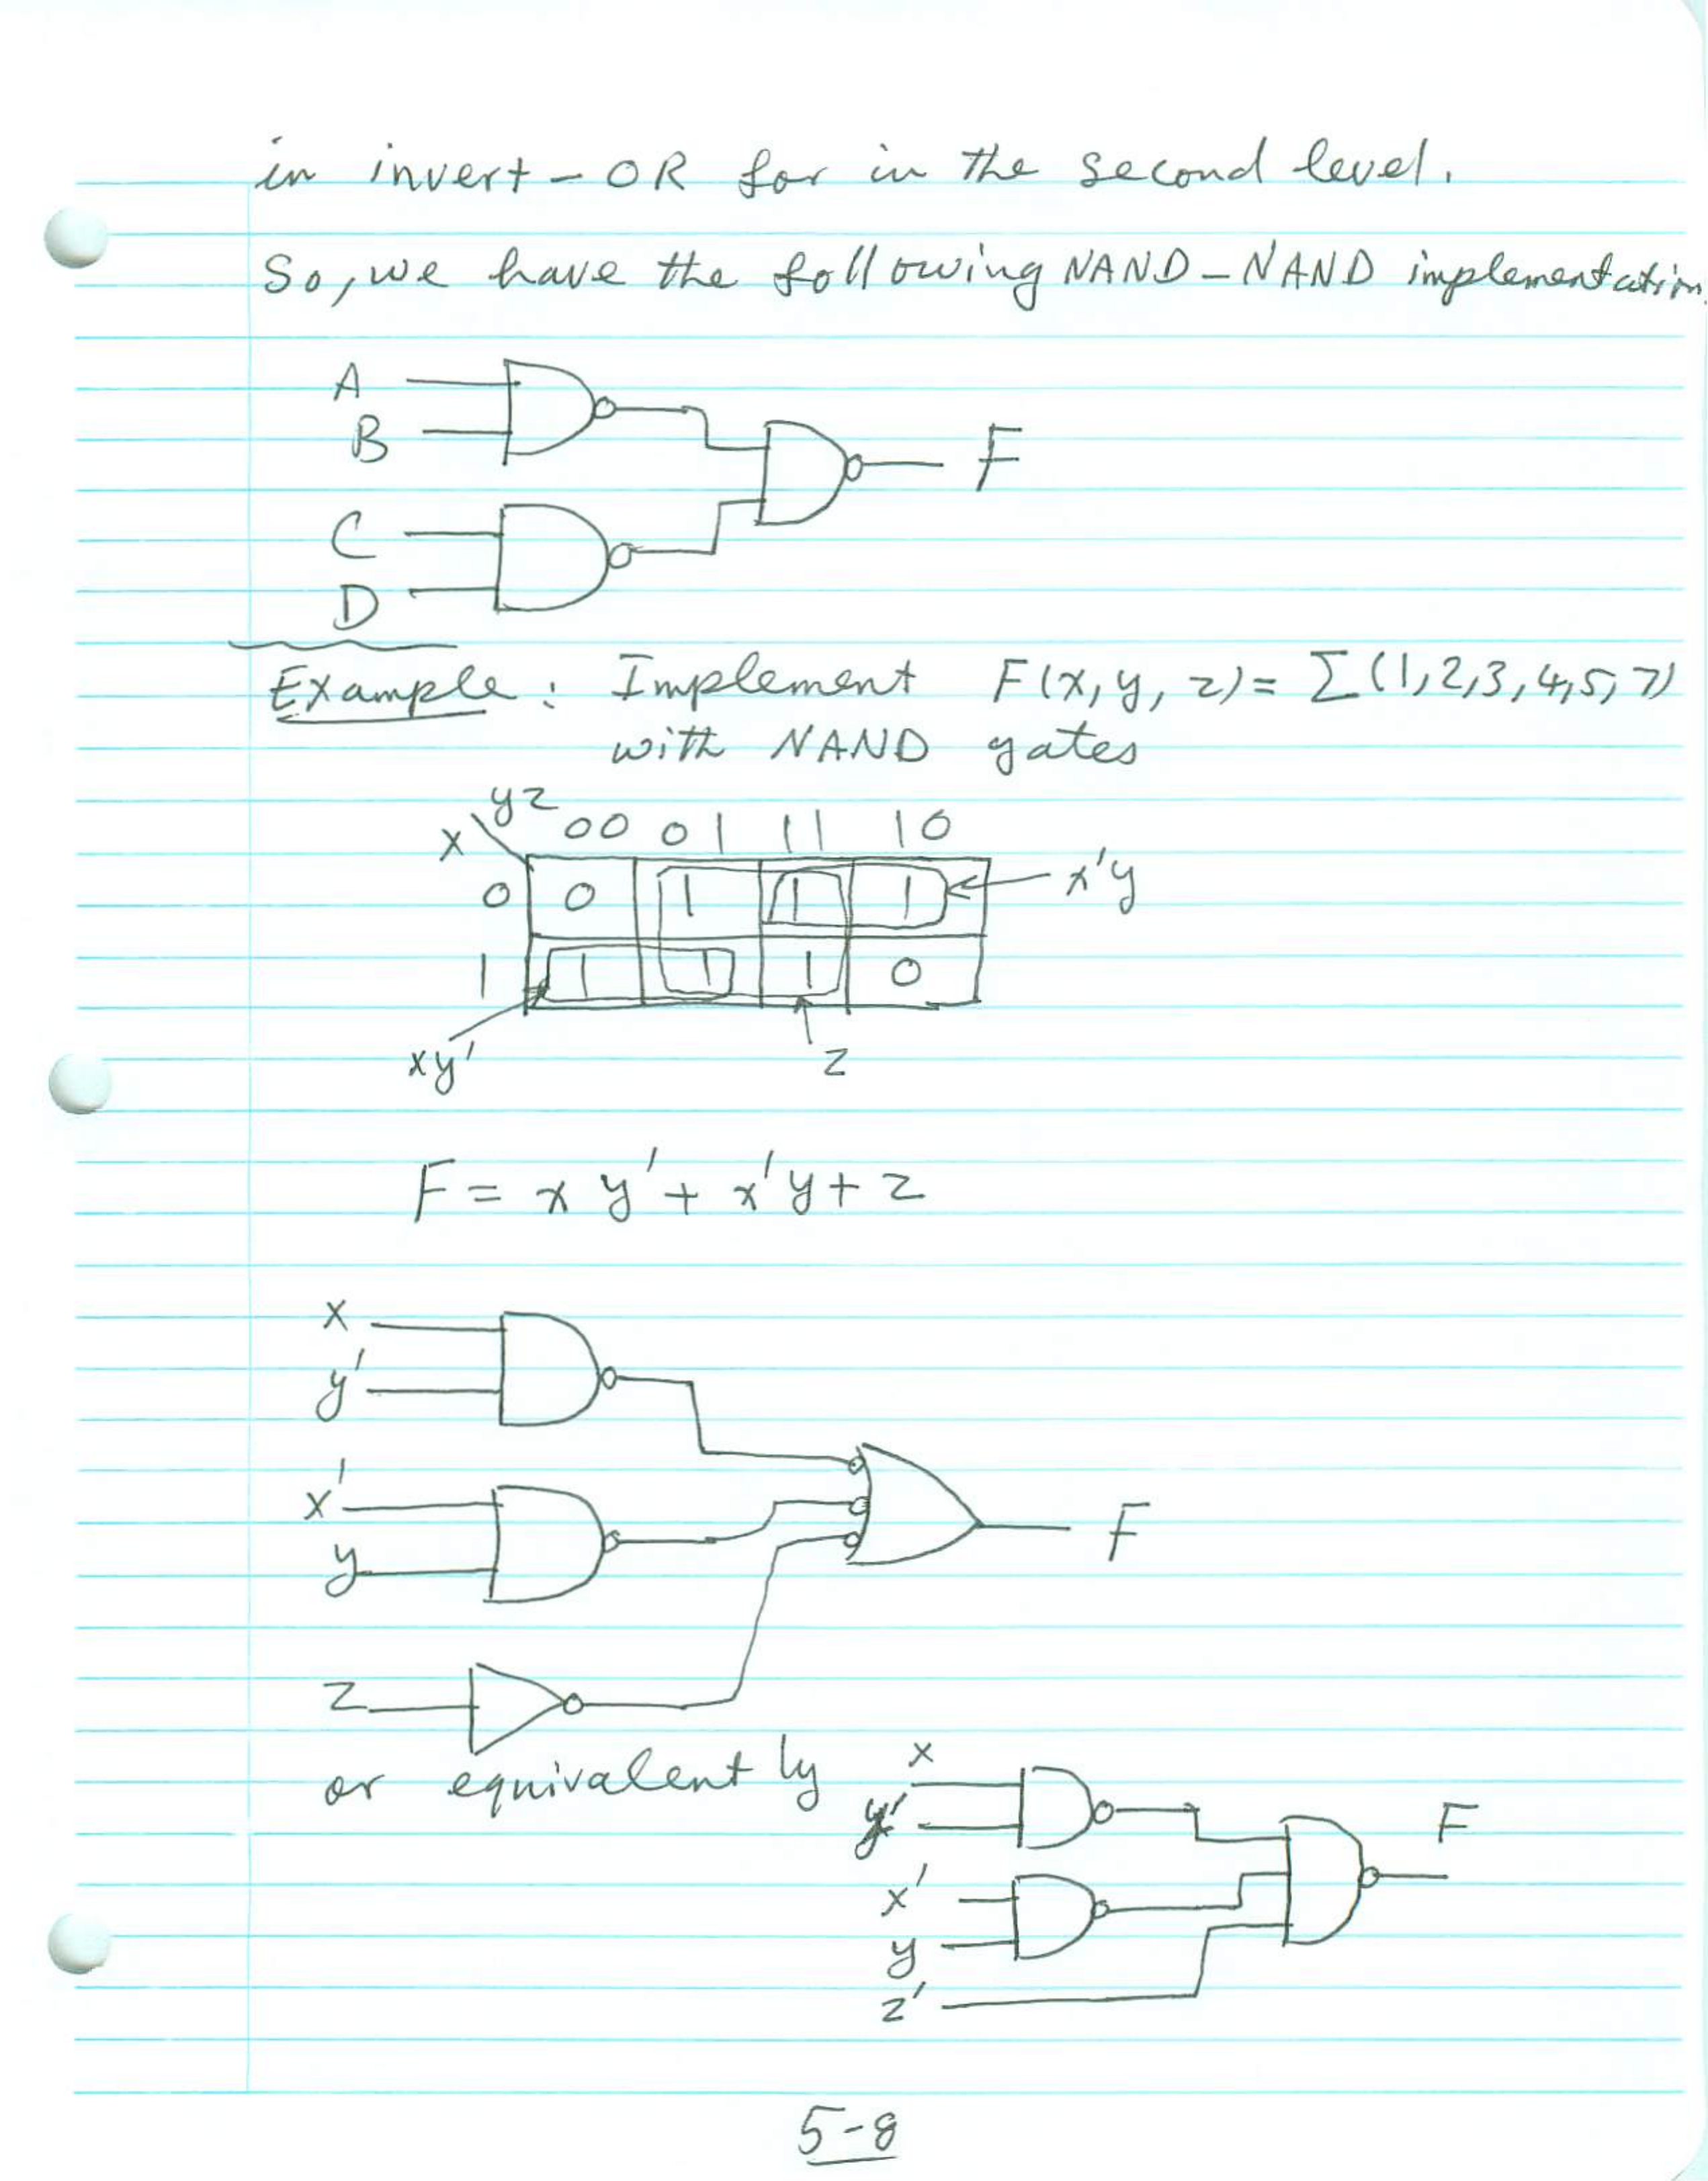 in invert - OR for in the second level.
So, we have the following NAND-NAND implementation.
A
B
F
C
D
Example: Implement F(x, y, z) = Σ(1,2,3,4,5,7)
with NAND gates
yz
x
00 01 11 10
0 0 1 1 1 x'y
1 1 1 1 0
xy' z
F = x y' + x'y + z
x
y'
x'
y
F
z
or equivalently
x
y'
F
x'
y
z'
5-8